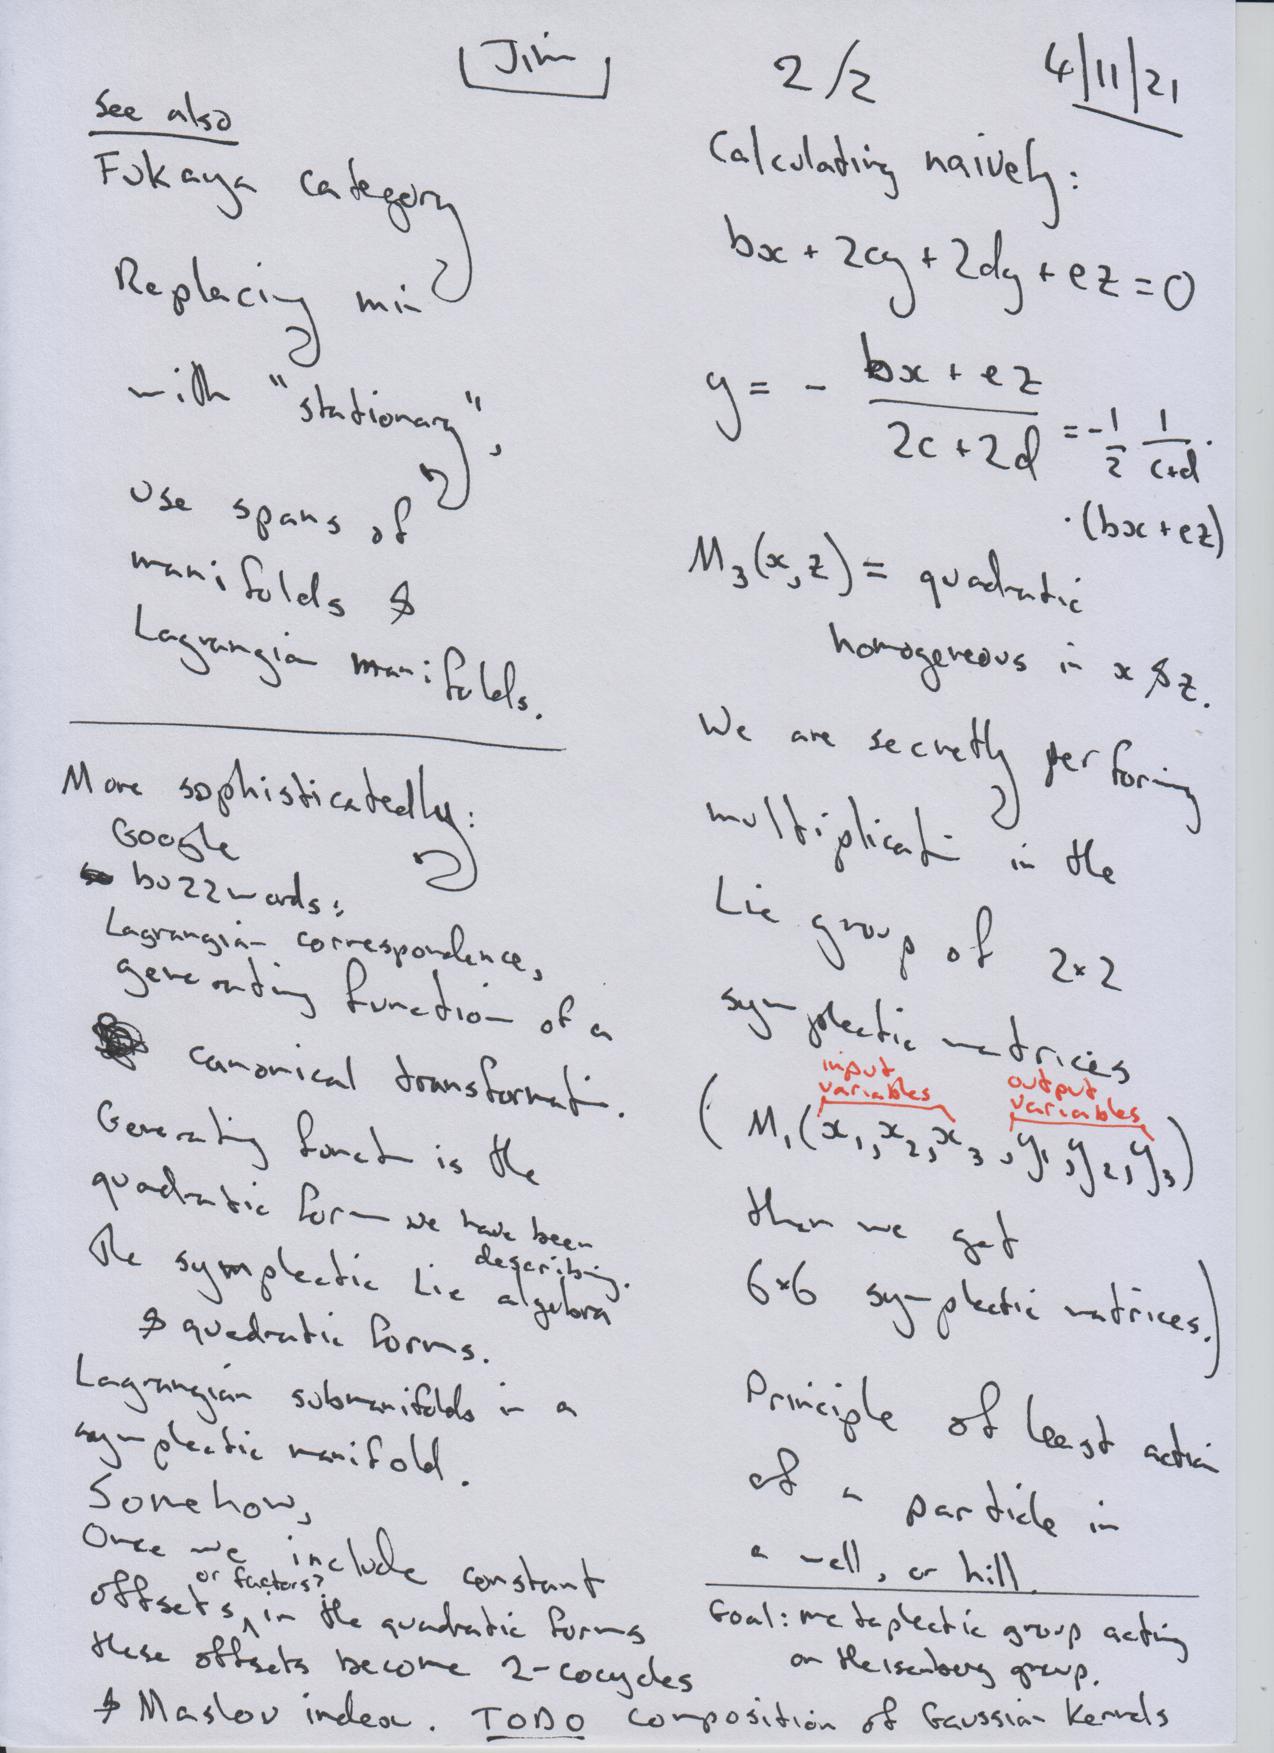 Jim
2/2
4/11/21
See also
Fukaya category
Replacing min
with "stationary",
use spans of
manifolds &
Lagrangian manifolds.
More sophisticatedly:
Google
buzzwords:
Lagrangian correspondence,
generating function of a
canonical transformation.
Generating function is the
quadratic form we have been
describing.
The symplectic Lie algebra
& quadratic forms.
Lagrangian submanifolds in a
symplectic manifold.
Somehow,
Once we include constant
or factors?
offsets ^ in the quadratic forms
these offsets become 2-cocycles
& Maslov index. TODO composition of Gaussian kernels
Calculating naively:
bx + 2cy + 2dy + ez = 0
y = - \frac{bx + ez}{2c + 2d} = -\frac{1}{2} \frac{1}{c+d} ·
· (bx + ez)
M₃(x, z) = quadratic
homogeneous in x & z.
We are secretly performing
multiplication in the
Lie group of 2×2
symplectic matrices
input variables
output variables
( M₁(x₁, x₂, x₃, y₁, y₂, y₃)
then we get
6×6 symplectic matrices.)
Principle of least action
of a particle in
a well, or hill.
Goal: metaplectic group acting
on Heisenberg group.